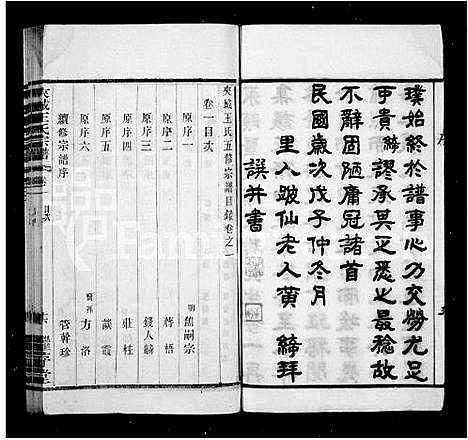 璞始終於譜事心力交勞尤足
可貴締謬承其正悉之最稔故
不辭固陋庸冠諸首
民國歲次戊子仲冬月
里人跛仙老人黃締拜
譔并書
夾城王氏五修宗譜目錄卷之一
卷一目次
原序一 明 焦嗣宗
原序二 蔣梧
原序三 錢人麟
原序四 莊柱
原序五 談霞
原序六 方洛
續修宗譜序 管幹珍
夾城王氏宗譜
目次